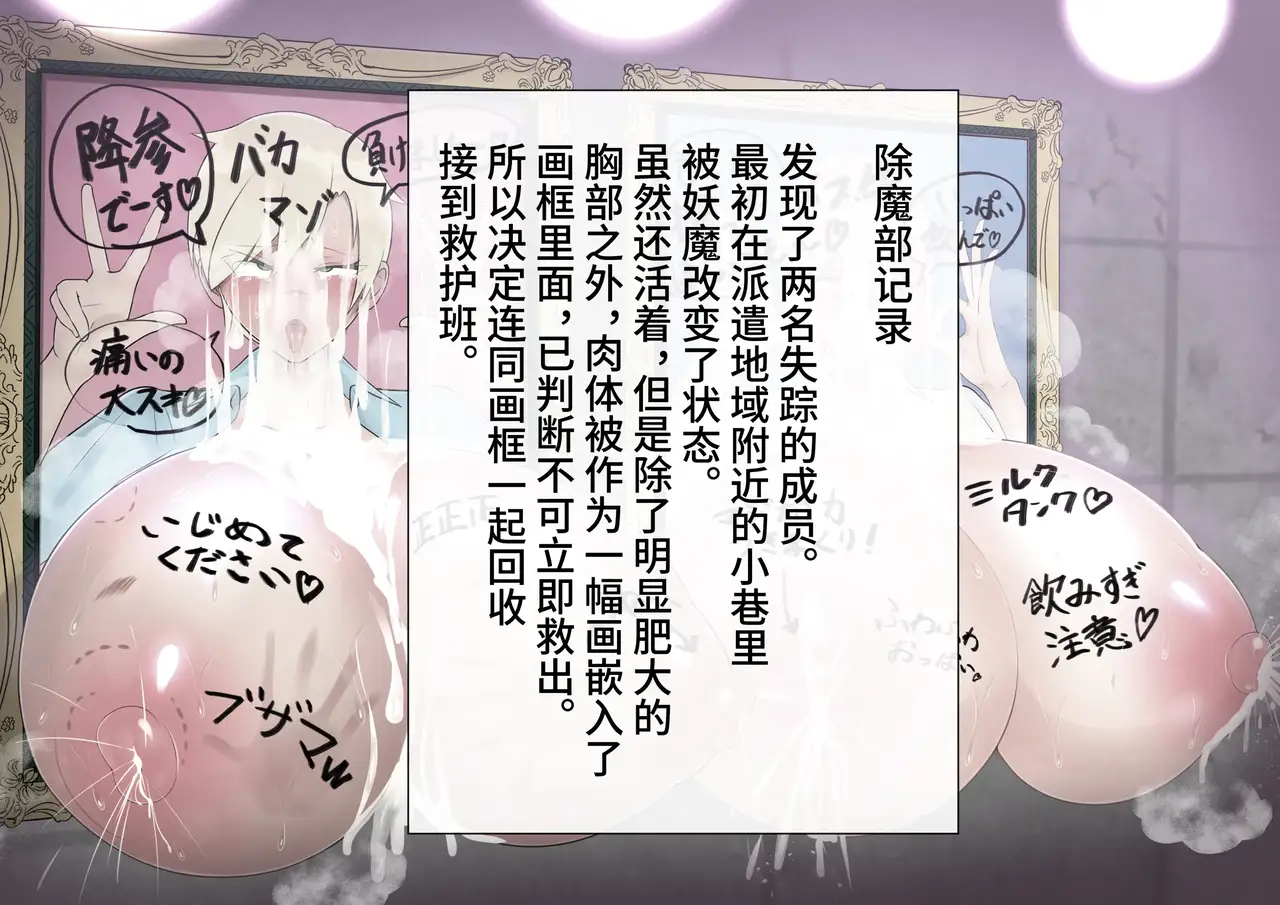 除魔部记录
发现了两名失踪的成员。
最初在派遣地域附近的小巷里
被妖魔改变了状态。
虽然还活着，但是除了明显肥大的
胸部之外，肉体被作为一幅画嵌入了
画框里面，已判断不可立即救出。
所以决定连同画框一起回收
接到救护班。
降参
でーす♡
バカ
マゾ
負け
痛いの
大スキ♡
いじめて
ください♡
ブザマw
正正正
っぱい
んで♡
ミルク
タンク♡
飲みすぎ
注意♡
ふわふわ
おっぱい。